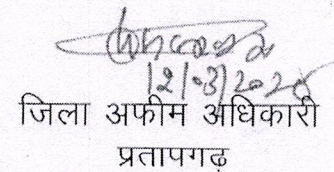 12/03/2025
जिला अफीम अधिकारी
प्रतापगढ़